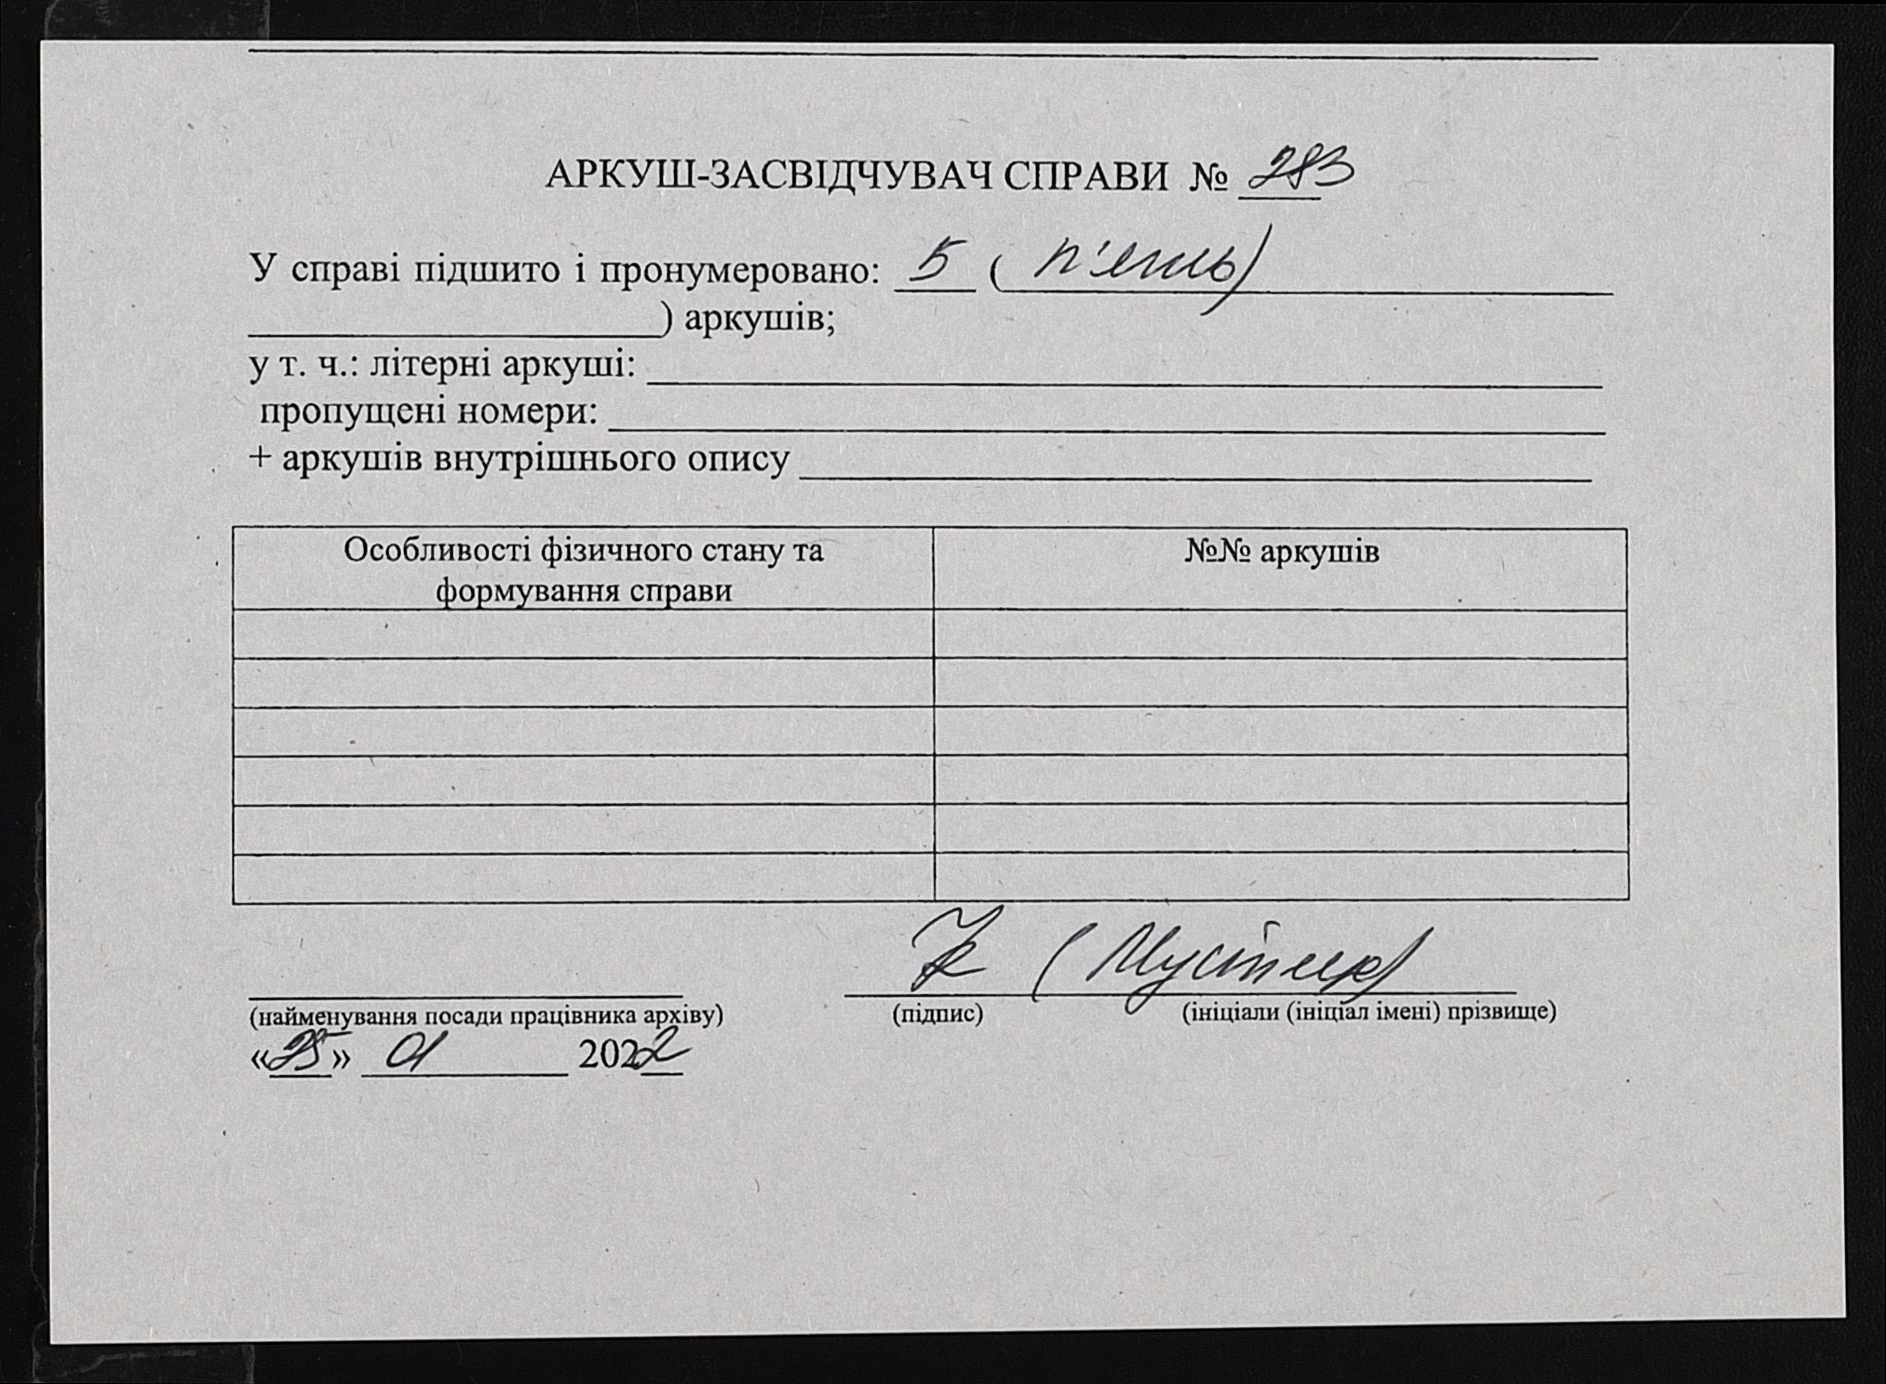 АРКУШ-ЗАСВІДЧУВАЧ СПРАВИ № 283
У справі підшито і пронумеровано: 5 ( п'ять)
) аркушів;
у т. ч.: літерні аркуші:
пропущені номери:
+ аркушів внутрішнього опису
Особливості фізичного стану та
формування справи
№№ аркушів
(найменування посади працівника архіву)
(підпис)
(ініціали (ініціал імені) прізвище)
«25» 01 2022